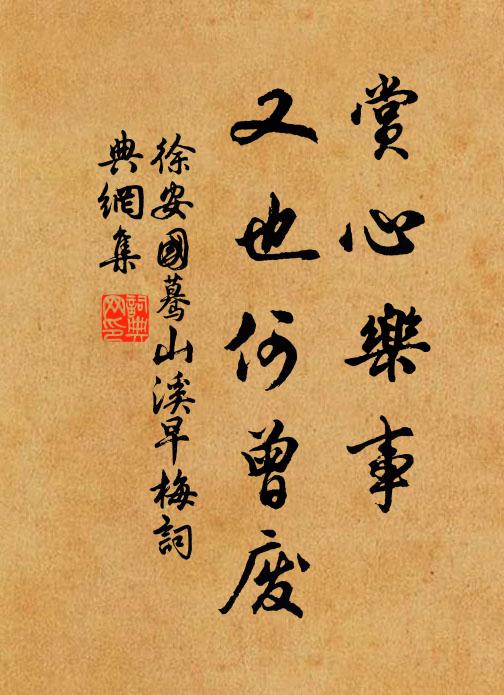 賞心樂事
又也何曾废
徐安國驀山溪早梅詞
典網集
詞典
网印